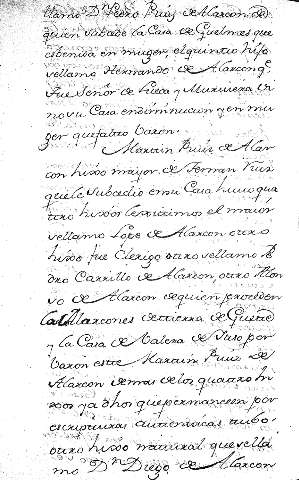 llamo Dⁿ Pedro Ruiz de Alarcon de
quien sabade la Casa de Guelmes que
estenida en muger, el quinto hijo
se llamo Hernando de Alarcon q̃
fue Señor de y
Casa endiminucion y en mu
ger que fatto varon.
Martin Ruiz de Alar
con hixo mayor de Ferran Ruiz
quele subcedio en su Casa huuo qua
tro hixos lexitimos el maior
se llamo Lope de Alarcon otro
hixo fue Clerigo otro se llamo Pe
dro Carrillo de Alarcon, otro Alon
so de Alarcon de quien proceden
los Alarcones de tierra de Guete
y la Casa de Valera de Suso por
varon este Martin Ruiz de
Alarcon demas delos quatro hi
xos ya dhos que permanecen por
escripturas autenticas hubo
otro hixo natural que se lla
mo Dⁿ Diego de Alarcon